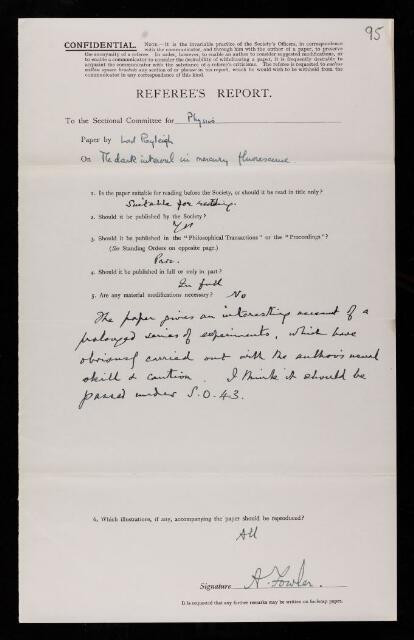 95
CONFIDENTIAL. NOTE.—It is the invariable practice of the Society's Officers, in correspondence
with the communicator, and through him with the author of a paper, to preserve
the anonymity of a referee. In order, however, to enable an author to consider suggested modifications, or
to enable a communicator to consider the desirability of withdrawing a paper, it is frequently desirable to
acquaint the communicator with the substance of a referee's criticisms. The referee is requested to enclose
within square brackets any section of or phrase in his report, which he would wish to be withheld from the
communicator in any correspondence of this kind.
REFEREE'S REPORT.
To the Sectional Committee for Physics
Paper by Lord Rayleigh
On The dark interval in mercury fluorescence
1. Is the paper suitable for reading before the Society, or should it be read in title only?
Suitable for reading.
2. Should it be published by the Society?
Yes
3. Should it be published in the "Philosophical Transactions" or the "Proceedings"?
(See Standing Orders on opposite page.)
Proc.
4. Should it be published in full or only in part?
In full
5. Are any material modifications necessary? No
The paper gives an interesting account of a
prolonged series of experiments, which have
obviously carried out with the author's usual
skill & caution. I think it should be
passed under S.O.43.
6. Which illustrations, if any, accompanying the paper should be reproduced?
All
Signature A. Fowler.
It is requested that any further remarks may be written on foolscap paper.